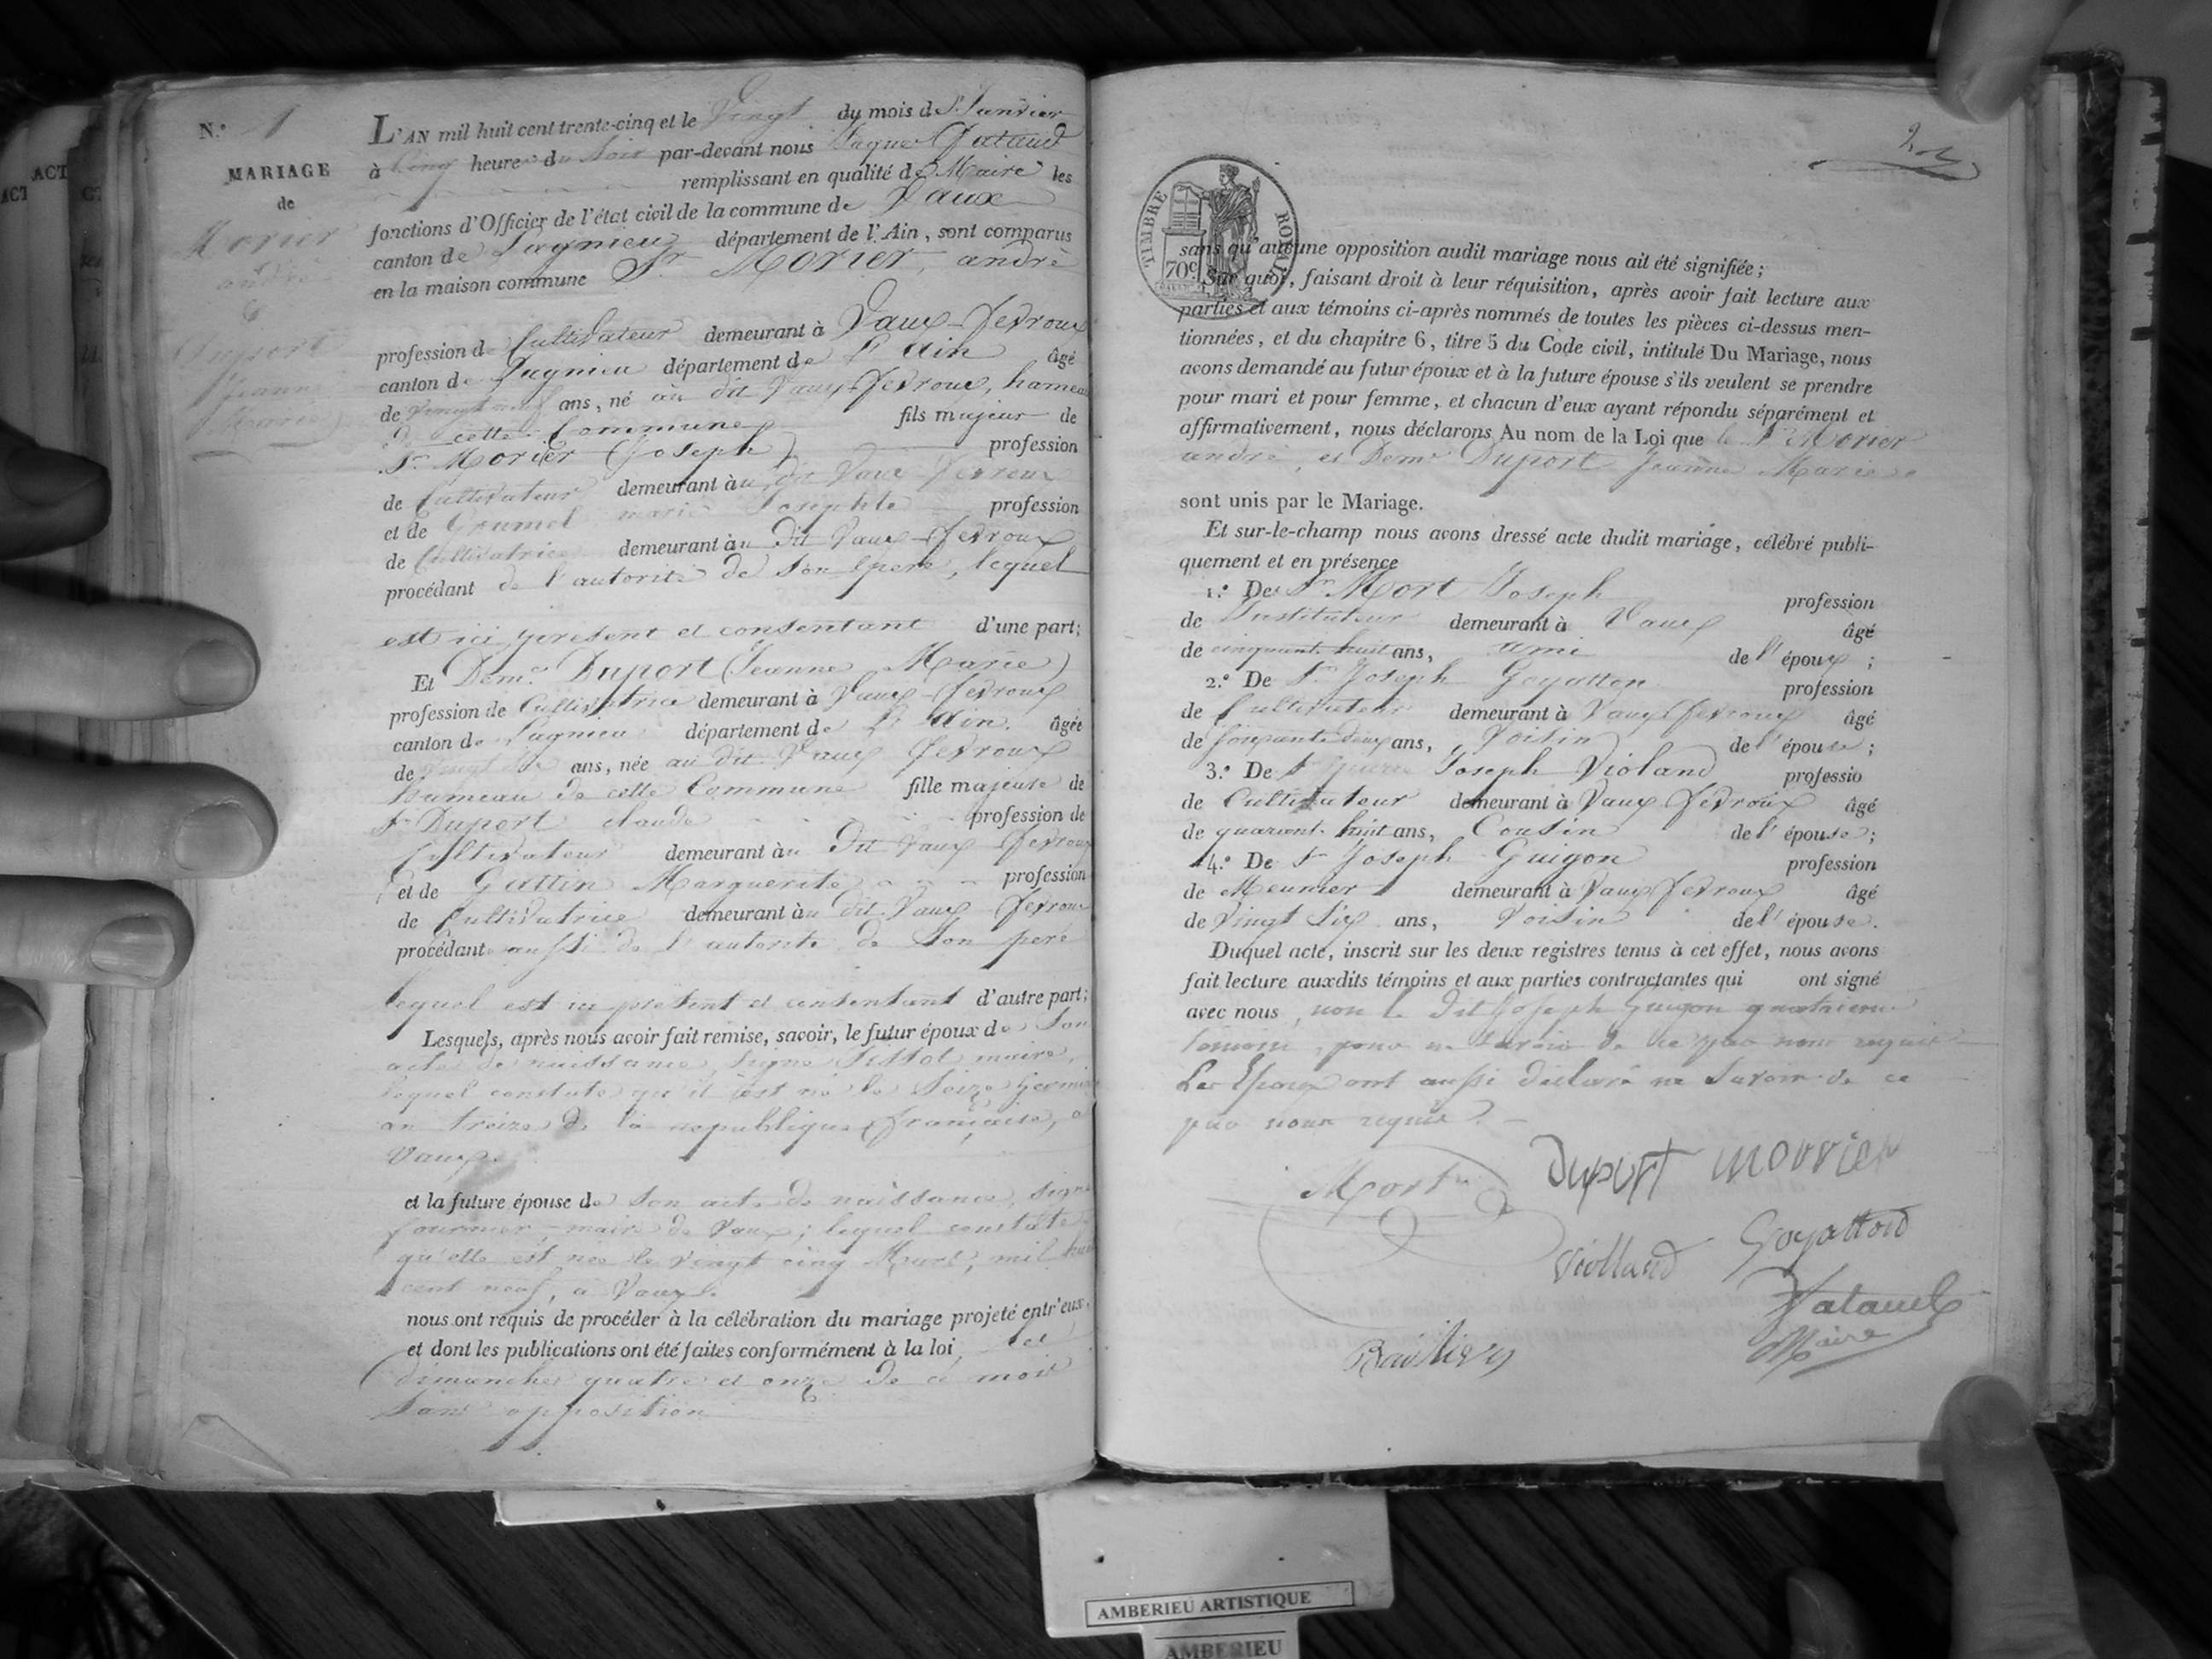 N.º 1
MARIAGE
de
Morier
andré
&
Duport
Jeanne
Marie
L'AN mil huit cent trente-cinq et le Vingt du mois de Janvier
à Cinq heures du Soir par-devant nous
remplissant en qualité de Maire les
fonctions d'Officier de l'état civil de la commune de Vaux
canton de Lagnieu département de l'Ain, sont comparus
en la maison commune Sr. Morier, andré
profession de Cultivateur demeurant à Vaux-Fevroux
canton de Lagnieu département de l'Ain âgé
de Vingt neuf ans, né au dit Vaux-Fevroux, hameau
de cette Commune fils majeur de
Sr. Morier (Joseph) profession
de Cultivateur demeurant au dit Vaux Fevroux
et de marie Josephte profession
de Cultivatrice demeurant au dit Vaux-Fevroux
procédant de l'autorité de son père, lequel
est ici présent et consentant d'une part;
Et Demlle Duport (Jeanne Marie)
profession de Cultivatrice demeurant à Vaux-Fevroux
canton de Lagnieu département de l'Ain. âgée
de ans, née au dit Vaux Fevroux
hameau de cette Commune fille majeure de
Sr. Duport claude profession de
Cultivateur demeurant au dit Vaux Fevroux
et de Gattin Marguerite profession
de Cultivatrice demeurant au dit Vaux Fevroux
procédant aussi de l'autorité de son père
lequel est ici présent et consentant d'autre part;
Lesquels, après nous avoir fait remise, savoir, le futur époux de son
acte de naissance, signé maire,
lequel constate qu'il est né le Seize Germinal
an treize de la république française, a
Vaux.
et la future épouse de son acte de naissance, signé
fournier, maire de Vaux; lequel constate
qu'elle est née le vingt cinq Mars, mil huit
cent neuf, à Vaux.
nous ont requis de procéder à la célébration du mariage projeté entr'eux,
et dont les publications ont été faites conformément à la loi, les
dimanches quatre et onze de ce mois
sans opposition
TIMBRE ROYAL
70c
sans qu'aucune opposition audit mariage nous ait été signifiée;
Sur quoi, faisant droit à leur réquisition, après avoir fait lecture aux
parties et aux témoins ci-après nommés de toutes les pièces ci-dessus men-
tionnées, et du chapitre 6, titre 5 du Code civil, intitulé Du Mariage, nous
avons demandé au futur époux et à la future épouse s'ils veulent se prendre
pour mari et pour femme, et chacun d'eux ayant répondu séparément et
affirmativement, nous déclarons Au nom de la Loi que le Sr. Morier
andré, et Demlle Duport Jeanne Marie.
sont unis par le Mariage.
Et sur-le-champ nous avons dressé acte dudit mariage, célébré publi-
quement et en présence
1.º De Sr. Mort Joseph profession
de Instituteur demeurant à Vaux âgé
de cinquante huit ans, ami de l'époux;
2.º De Sr. Joseph Goyatton profession
de Cultivateur demeurant à Vaux Fevroux âgé
de Soixante deux ans, Voisin de l'épouse;
3.º De Sr. Joseph Violand professio
de Cultivateur demeurant à Vaux Fevroux âgé
de quarante huit ans, Cousin de l'épouse;
4.º De Sr. Joseph Guigon profession
de Meunier demeurant à Vaux Fevroux âgé
de Vingt Six ans, Voisin de l'épouse.
Duquel acte, inscrit sur les deux registres tenus à cet effet, nous avons
fait lecture auxdits témoins et aux parties contractantes qui ont signé
avec nous, non le dit Joseph Guigon quatrieme
témoin, pour ne savoir de ce par nous requis
Les Epoux ont aussi déclaré ne savoir de ce
par nous requis.
Mort Duport morrier
Viollaud Goyatton
Maire
AMBERIEU ARTISTIQUE
AMBERIEU